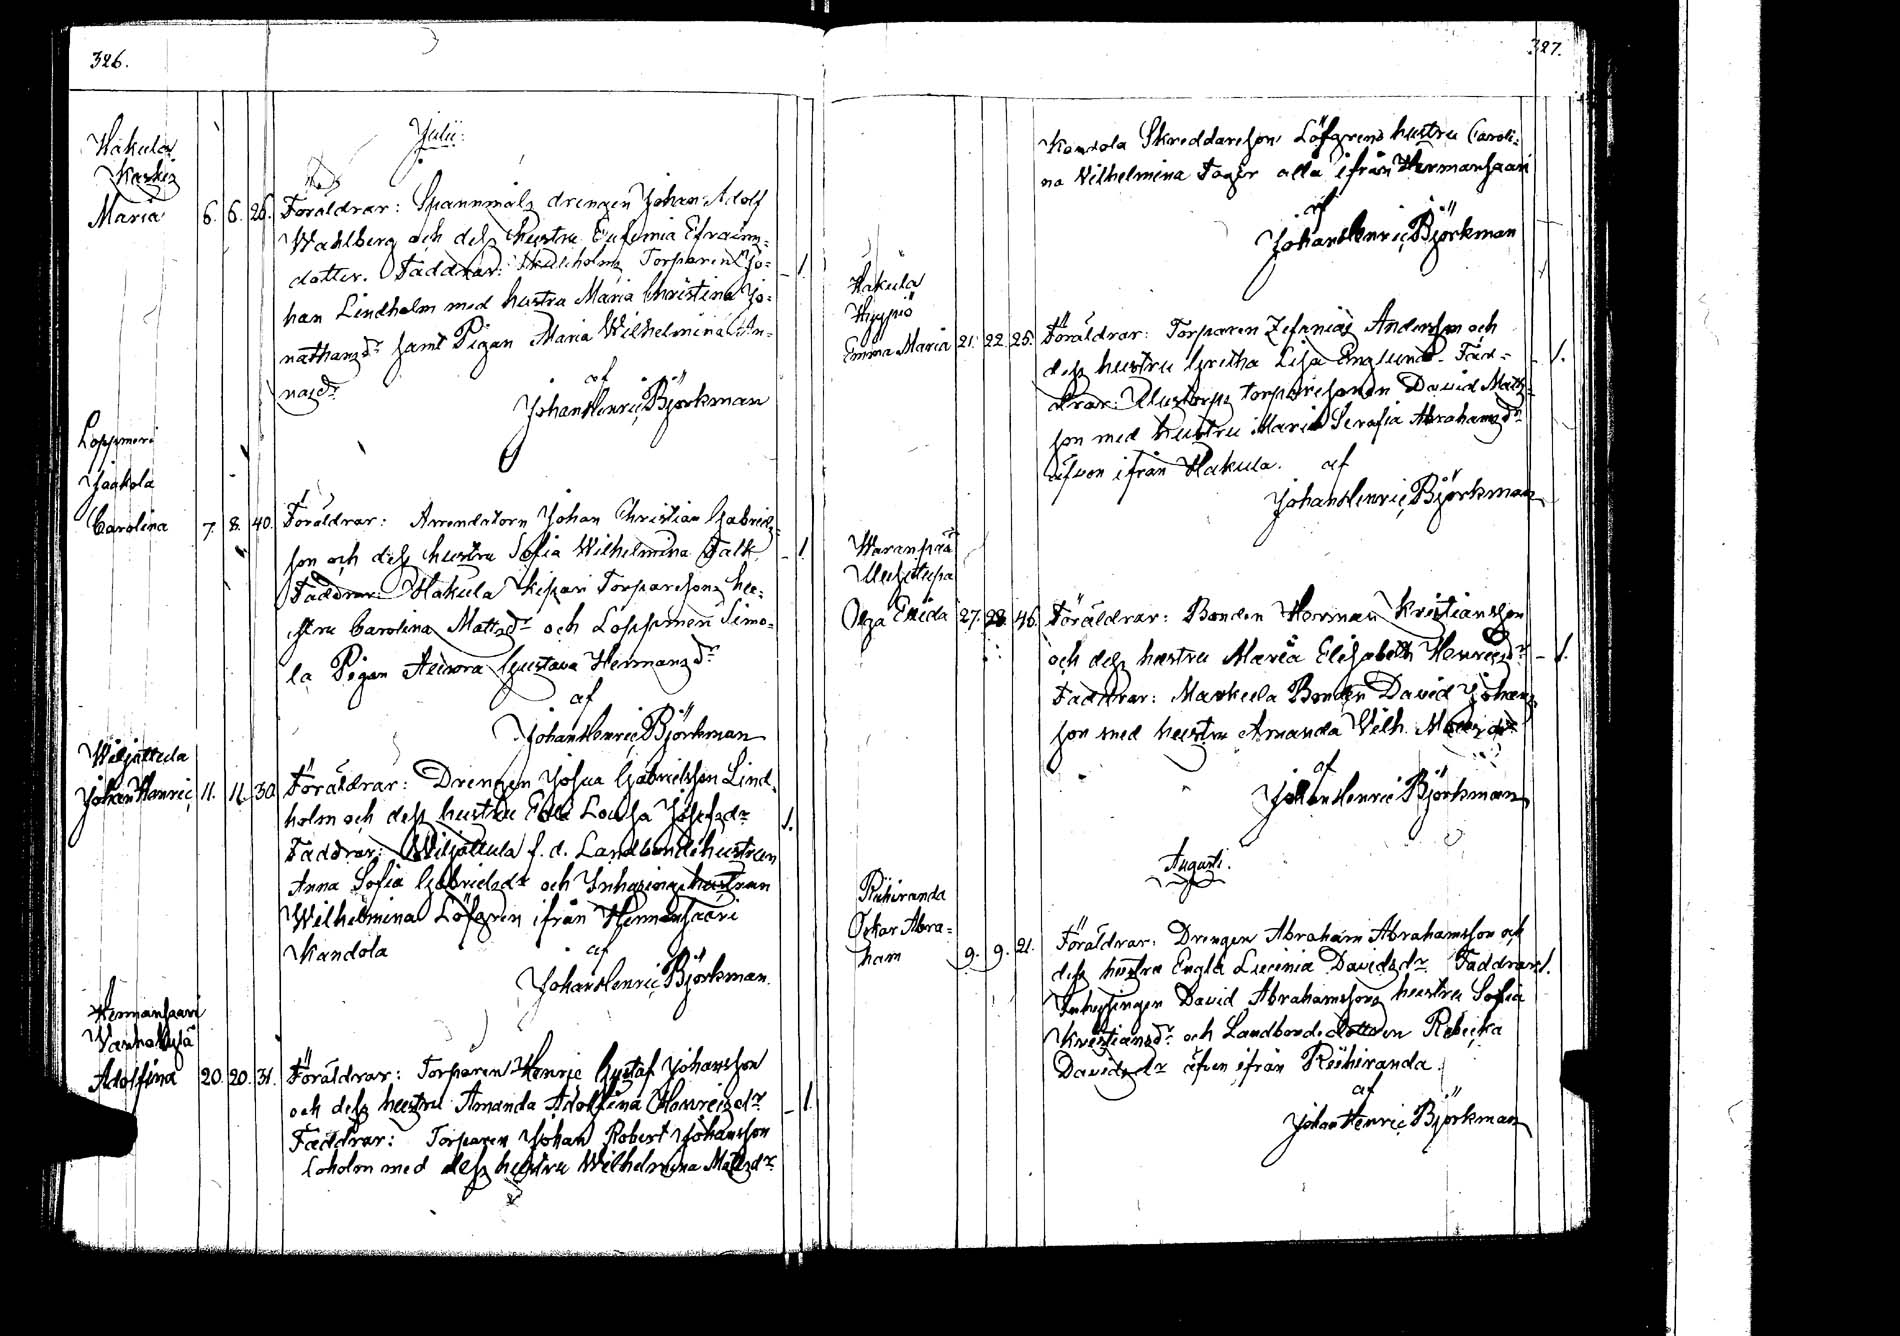 326.
Julii:
Hakula
Maria 6. 6. 26. Föräldrar: Spannmåls drengen Johan Adolf
Wahlberg och dess hustru Eufemia Efraims-
dotter. Faddrar: Torparen Jo-
han Lindholm med hustru Maria Christina Jo-
nathansdr samt Pigan Maria Wilhelmina An-
nasdr
af
Johan Henric Björkman
Loppmeri
Jaakola
Carolina 7. 8. 40. Föräldrar: Arrendatorn Johan Christian Gabriels-
son och dess hustru Sofia Wilhelmina Falk
Faddrar: Hakula Kepari Torparesons hu-
stru Carolina Mattsdr och Loppmeri Simo-
la Pigan Aurora Gustava Hermansdr
af
Johan Henric Björkman
Wiljattula
Johan Henric 11. 11. 30. Föräldrar: Drengen Josua Gabrielsson Lind-
holm och dess hustru Edla Lovisa Josefsdr
Faddrar: Wiljattula f. d. Landbondehustrun
Anna Sofia Gabrielsdr och Inhysingehustrun
Wilhelmina Löfgren ifrån Hermansaari
Kandola
af
Johan Henric Björkman.
Hermansaari
Vanhakylä
Adolfina 20. 20. 31. Föräldrar: Torparen Henric Gustaf Johansson
och dess hustru Amanda Adolfina Henricsdr
Faddrar: Torparen Johan Robert Johansson
Loholm med dess hustru Wilhelmina Mattsdr
327.
Kandola Skreddareson Löfgrens hustru Caroli-
na Wilhelmina Fager alla ifrån Hermansaari
af
Johan Henric Björkman
Hakula
Hyypiö
Emma Maria 21. 22. 25. Föräldrar: Torparen Zefanias Andersson och
dess hustru Gretha Lisa Englund. Fad-
drar: torparesonen David Matts-
son med hustru Maria Serafia Abrahamsdr
äfven ifrån Hakula. af
Johan Henric Björkman
Haranpää
Uusitupa
Olga Elida 27. 28. 46. Föräldrar: Bonden Herman Kristiansson
och dess hustru Maria Elisabeth Henricsdr
Faddrar: Markula Bonden David Johans-
son med hustru Amanda Wilh. Mattsdr
af
Johan Henric Björkman
Augusti.
Riihiranda
Oskar Abra-
ham 9. 9. 21. Föräldrar: Drengen Abraham Abrahamsson och
dess hustru Engla Lucinia Davidsdr Faddrar:
Inhysingen David Abrahamssons hustru Sofia
Kristiansdr och Landbondedottren Rebecka
Davidsdr äfven ifrån Riihiranda.
af
Johan Henric Björkman